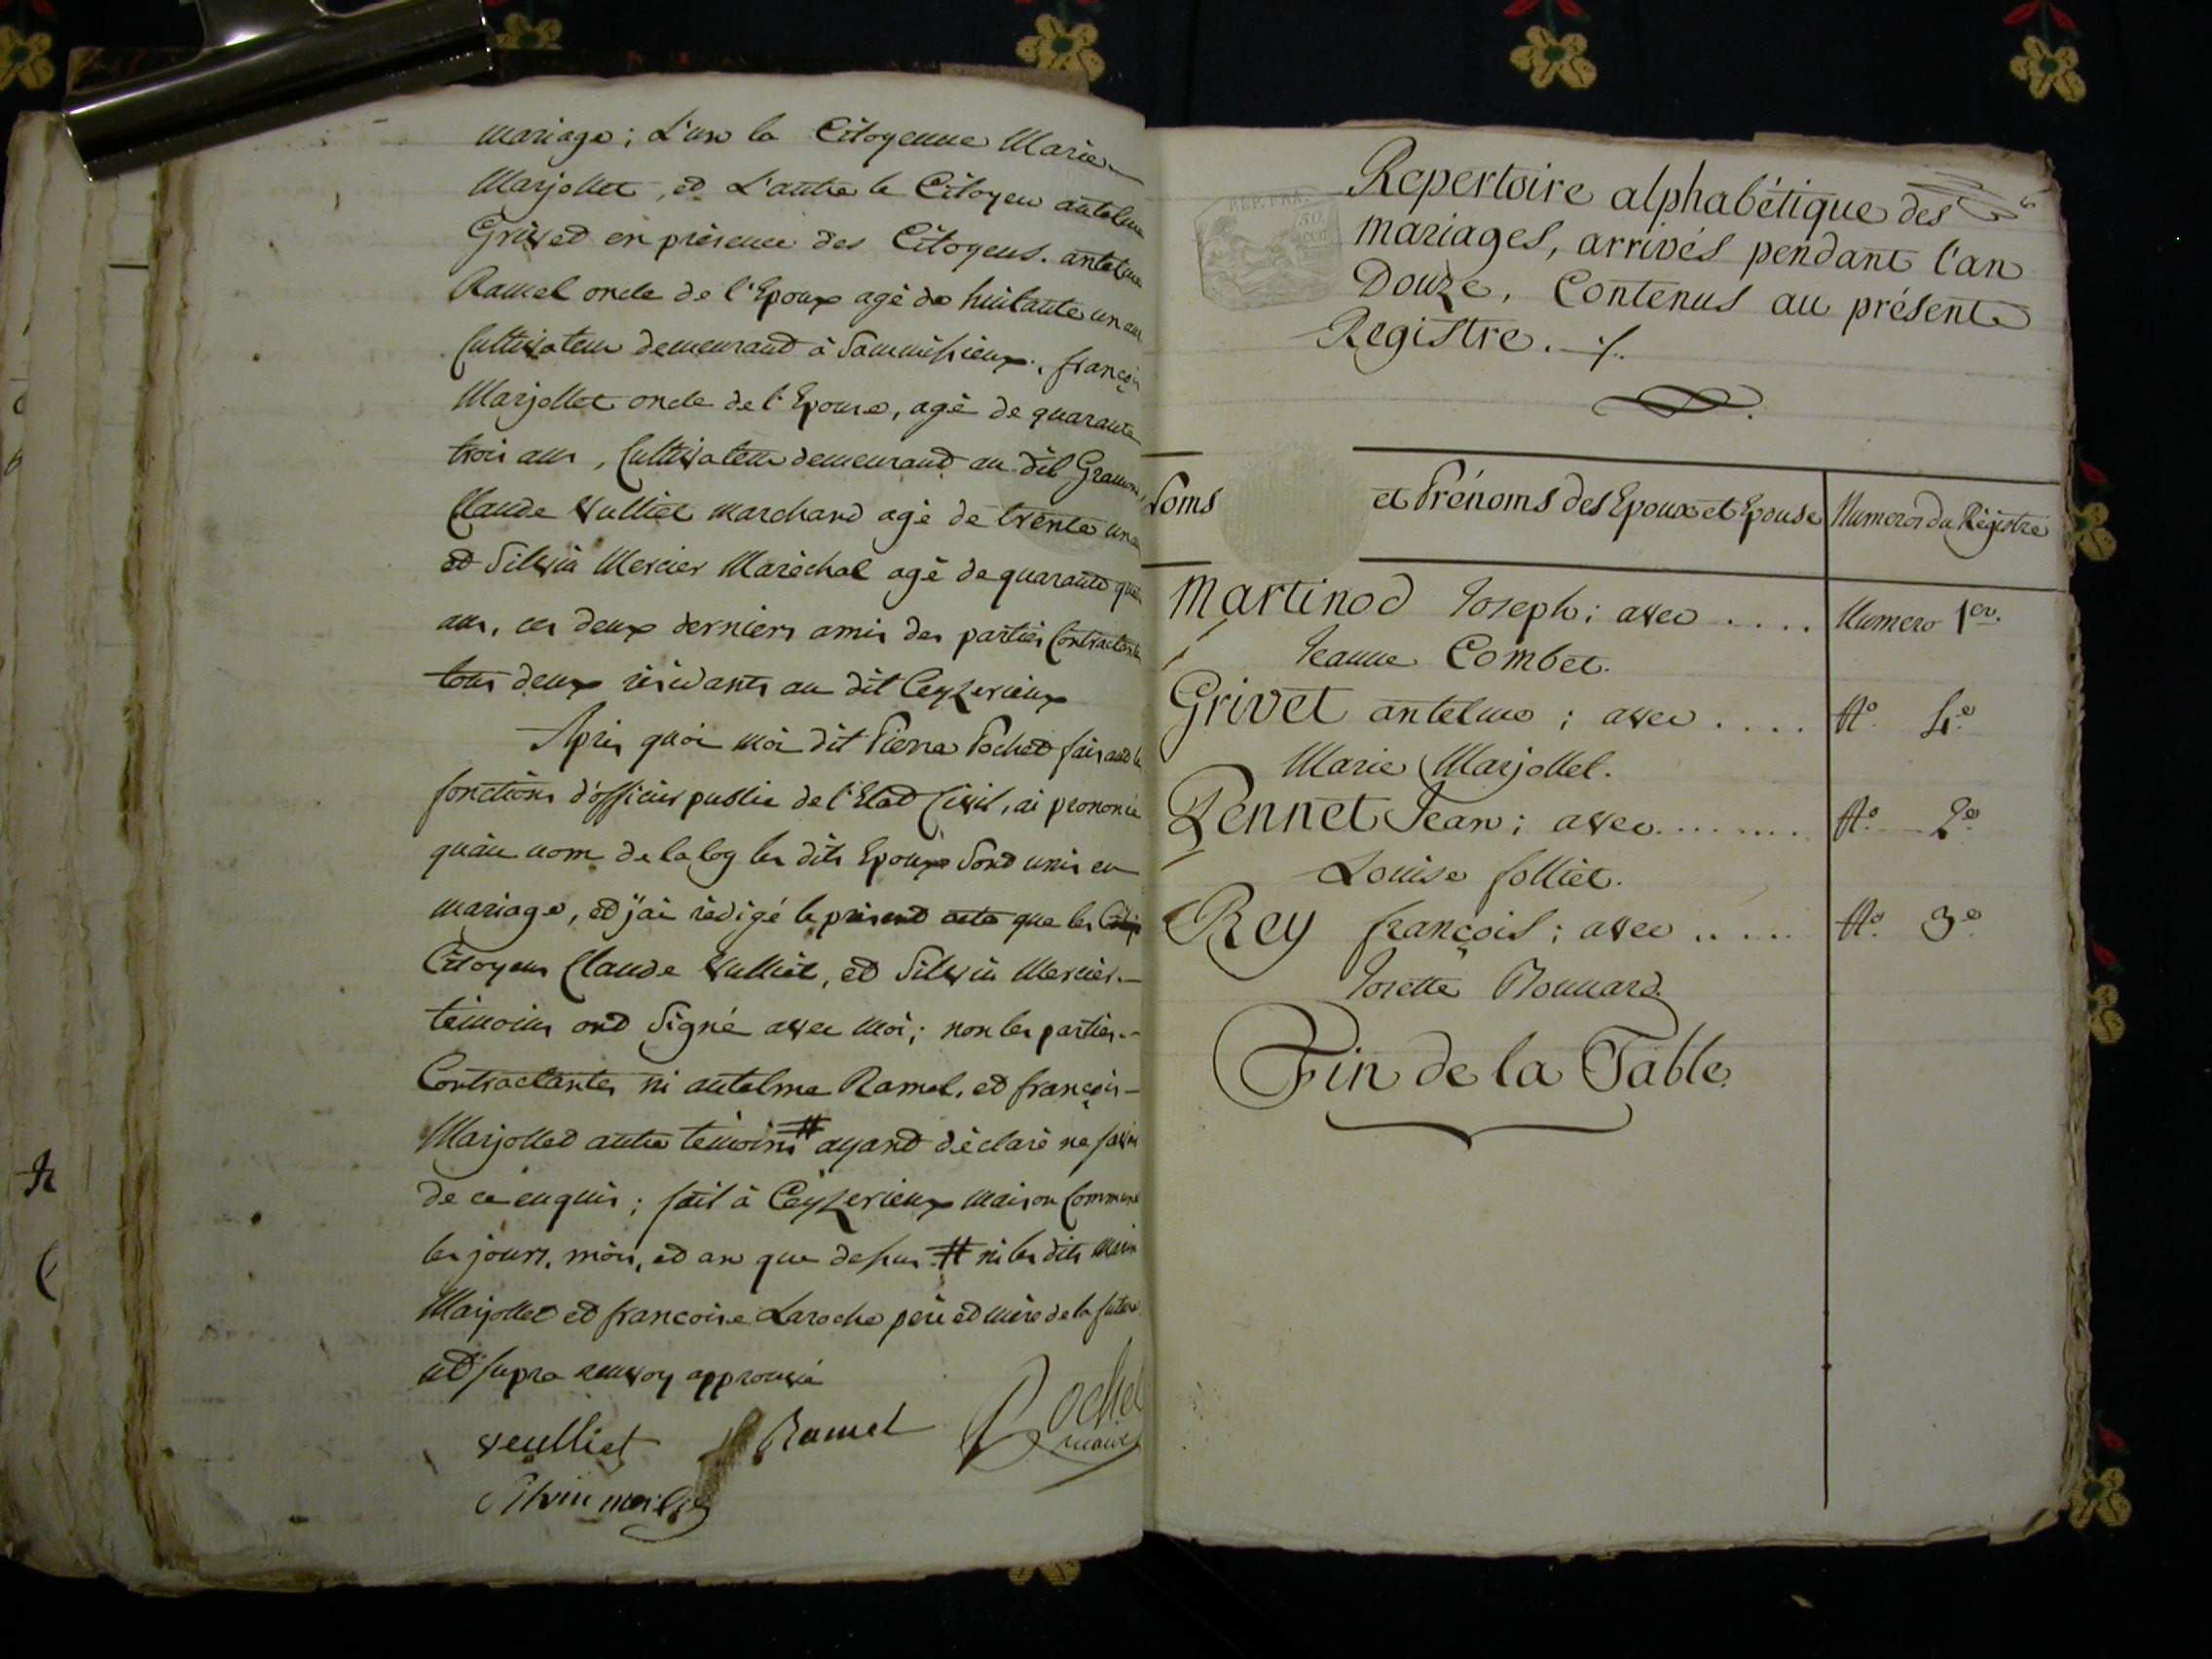 mariage; L'un la Citoyenne Marie
Marjollet, et L'autre le Citoyen antelme
Grivet en présence des Citoyens. antelme
Ramel oncle de l'Epoux agé de huitante un ans
Cultivateur demeurant à Sammissieux., françois
Marjollet oncle de l'Epouse, agé de quarante
trois ans, Cultivateur demeurand au dit
Claude Vulliet marchand agé de trente un
et Silvin Mercier Maréchal agé de quarante
ans, ces deux derniers amis des parties Contractantes
tous deux résidants au dit Ceyzerieux
Après quoi moi dit Pierre Pochet faisant les
fonctions d'officier public de l'Etat Civil, ai prononcé
qu'au nom de la loy les dits Epoux sont unis en
mariage, et j'ai rédigé le présent acte que les
Citoyens Claude Vulliet, et Silvin Mercier
témoins ont Signé avec moi; non les parties
Contractantes ni antelme Ramel, et françois
Marjollet autre témoins # ayant déclaré ne savoir
de ce enquis; fait à Ceyzerieux maison Commune
les jours, mois, et an que dessus # ni les dits
Marjollet et francoise Laroche père et mère de la future
ut supra renvoy approuvé
veulliet Ramel Pochet
maire
Silvin mercier
Repertoire alphabétique des
REP. FRA.
50
mariages, arrivés pendant l'an
Douze, Contenus au présente
Registre. ./.
Noms et Prénoms des Epoux et Epouse Numeros du Régistre
Martinod Joseph; avec .... Numero 1er.
Jeanne Combet.
Grivet antelme; avec .... No. 4e
Marie Marjollet.
Pennet Jean; avec ........ No. 2e
Louise folliet.
Rey françois; avec ..... No. 3e
Josette Bonnard.
Fin de la Table